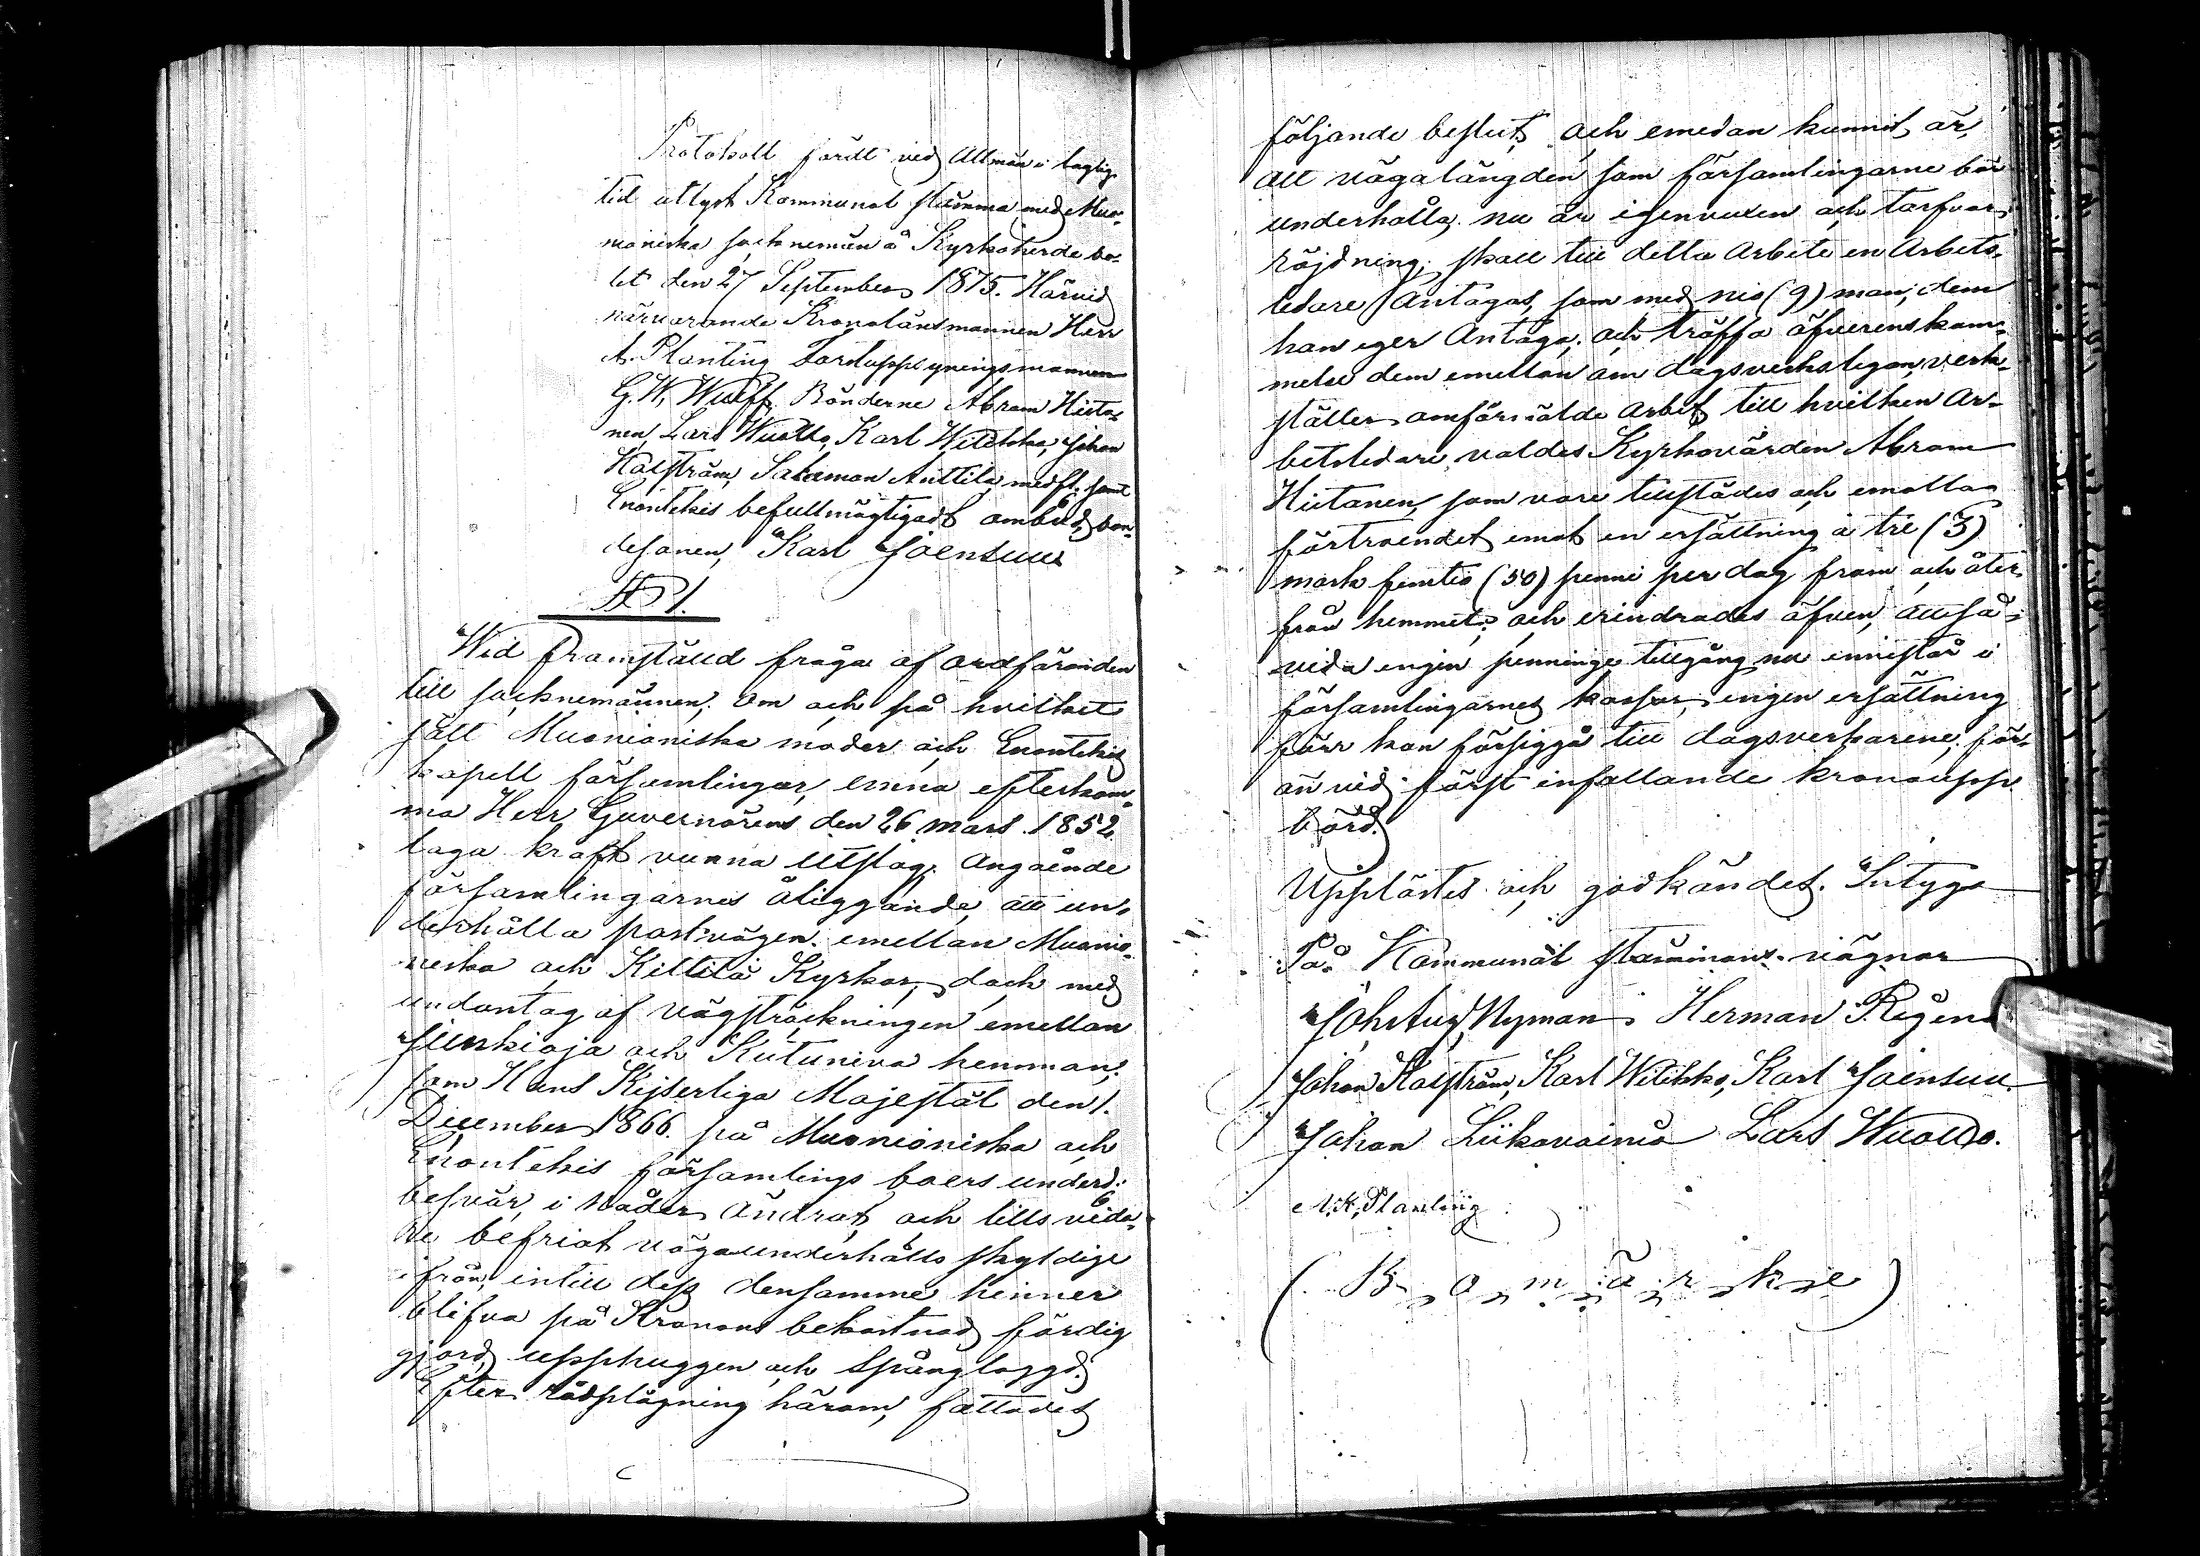 Protokoll fördt vid Allmän i laglig
tid utlyst Kommunal stämma med Muo-
nioniska socknemän å Kyrkoherde bo-
let den 27 September 1875. Härvid
närvarande Kronolänsmannen Herr
A. Planting Forstuppsyningsmannen
G. W. Wulff, Bönderne Abram Hieta-
nen, Lars Wuollo, Karl Wilkko, Johan
Kalström, Salomon Anttila med fl. samt
Enontekis befullmägtigadt ombud, bon-
desonen, Karl Joensuu
§ 1.
Wid framstäld fråga af ordföranden
till socknemännen, om och på hvilket
sätt Muonioniska moder och Enontekis
kapell församlingar, ernna efterkom-
ma Herr Guvernörens den 26 Mars 1852
laga kraft vunna utslag. Angående
församlingarnes åliggande, att un-
derhålla postvägen emellan Muonio-
niska och Kittilä Kyrkor, dock med
undantag af vägsträckningen emellan
och Kutuniva hemman;
som Hans Kejserliga Majestät den 1.
December 1866 på Muonioniska och
Enontekis församlings boers underd:
besvär, i Nåder Ändrat, och tills vida-
re befriat vägaunderhålls skyldige
ifrån, intill dess densamme hinner
blifva på Kronans bekostnad färdig
gjord, upphuggen och Spånglaggd.
Efter rådplägning härom, fattades
följande beslut, och emedan kunnit, är,
att vägalängden som församlingarne bör
underhålla, nu är igenvuxen och tarfvar
röjdning, skall till detta Arbete en Arbets-
ledare Antagas, som med nio (9) man, dem
han eger Antaga, och träffa öfverenskom-
melse dem emellan om dagsverkslegan, verk-
ställer omförmälde arbet, till hvilken Ar-
betsledare valdes Kyrkovärden Abram
Hietanen, som vore tillstädes och emottog
förtroendet emot en ersättning à tre (3)
mark femtio (50) penni per dag fram och åter
från hemmet; och erindrades äfven, att så-
vida engin penninge tillgång nu innestår i
församlingarnes kassor, ingen ersättning
förr kan försiggå till dagsverkarene, för-
än vid först infallande kronoupp-
börd.
Upplästes och godkändes. Intyga
På Kommunal stämmans vägnar
Joh. Aug. Nyman Herman Regina
Johan Kalström, Karl Wilkko, Karl Joensuu.
Johan Liikavainio Lars Wuollo.
A. K. Planting
( B o m ä r k e )